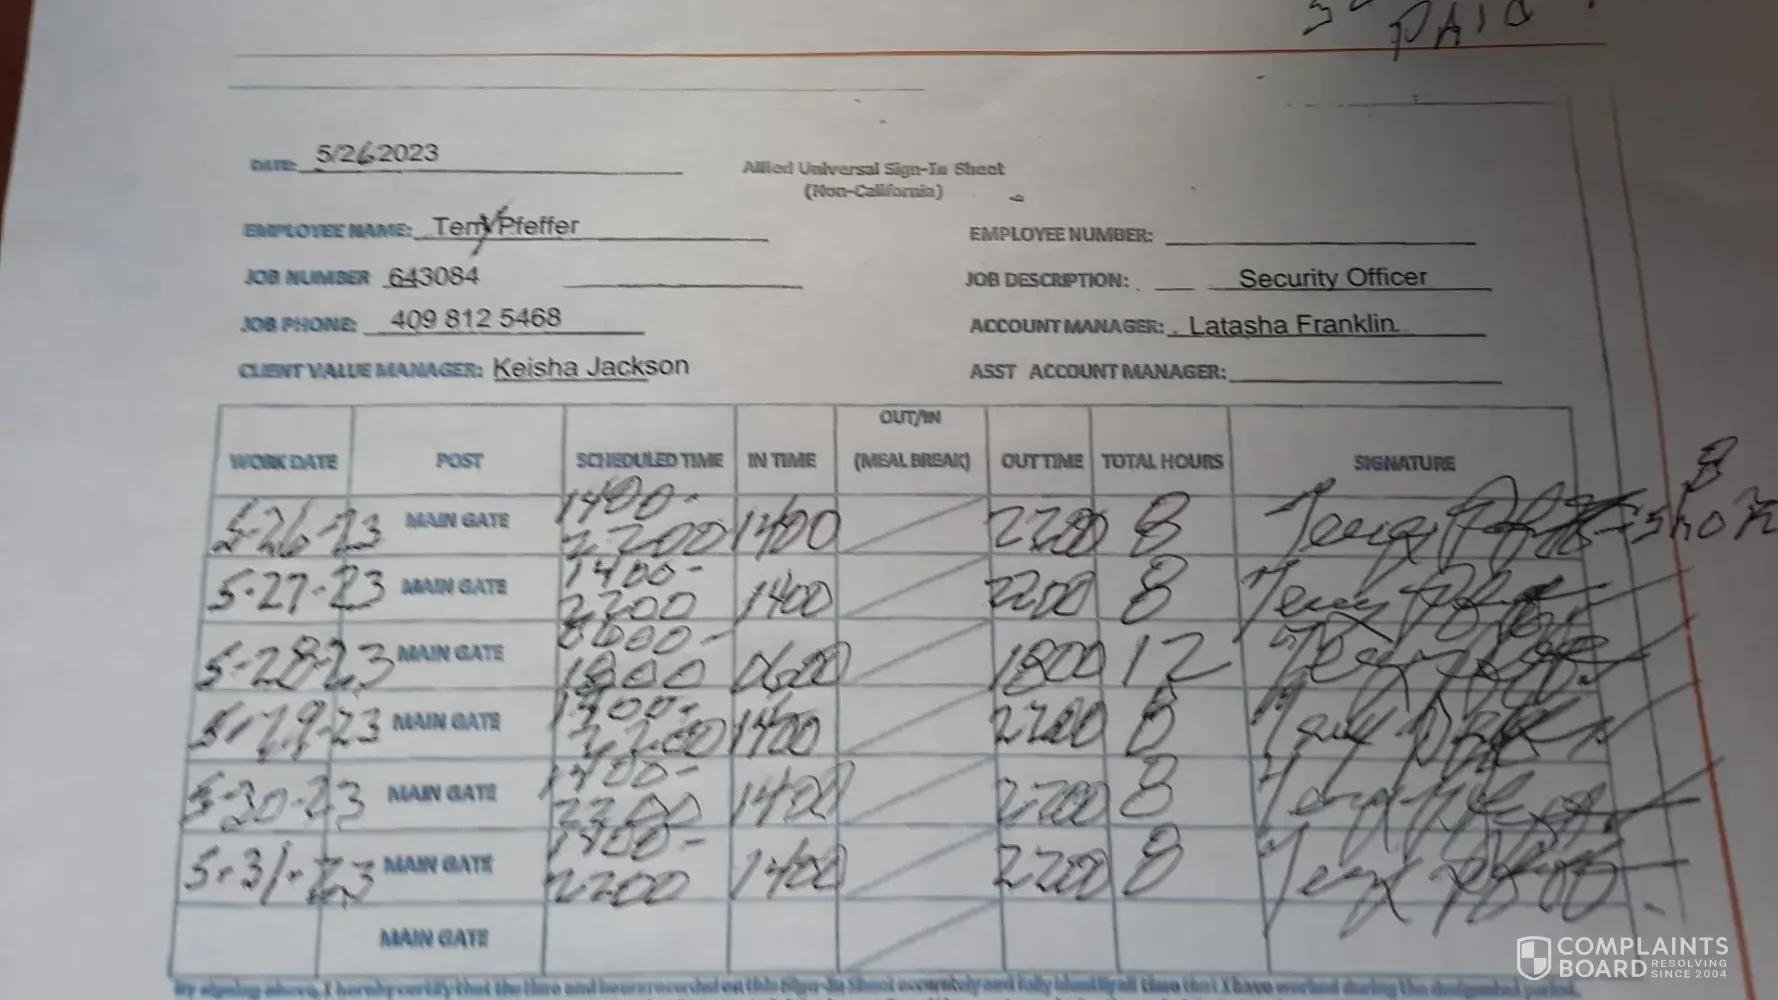 PAID
DATE: 5/26 2023
Allied Universal Sign-In Sheet
(Non-California)
EMPLOYEE NAME: Terry Pfeffer
EMPLOYEE NUMBER:
JOB NUMBER 643084
JOB DESCRIPTION: Security Officer
JOB PHONE: 409 812 5468
ACCOUNT MANAGER: Latasha Franklin
CLIENT VALUE MANAGER: Keisha Jackson
ASST ACCOUNT MANAGER:
WORK DATE POST SCHEDULED TIME IN TIME OUT/IN (MEAL BREAK) OUT TIME TOTAL HOURS SIGNATURE
5-26-23 MAIN GATE 1400-2200 1400 2200 8 Terry Pfeffer 8 short
5-27-23 MAIN GATE 1400-2200 1400 2200 8 Terry Pfeffer
5-28-23 MAIN GATE 0600-1800 0600 1800 12 Terry Pfeffer
5-29-23 MAIN GATE 1400-2200 1400 2200 8 Terry Pfeffer
5-30-23 MAIN GATE 1400-2200 1400 2200 8 Terry Pfeffer
5-31-23 MAIN GATE 1400-2200 1400 2200 8 Terry Pfeffer
MAIN GATE
By signing above, I hereby certify that the time and hours recorded on this Sign-In Sheet accurately and fully identify all time that I have worked during the designated period.
COMPLAINTS
BOARD RESOLVING SINCE 2004